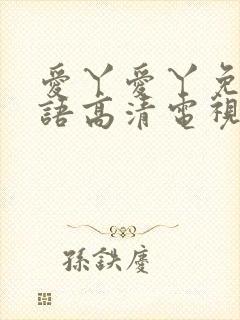 愛丫愛丫免
語高清電視
孫鉄慶